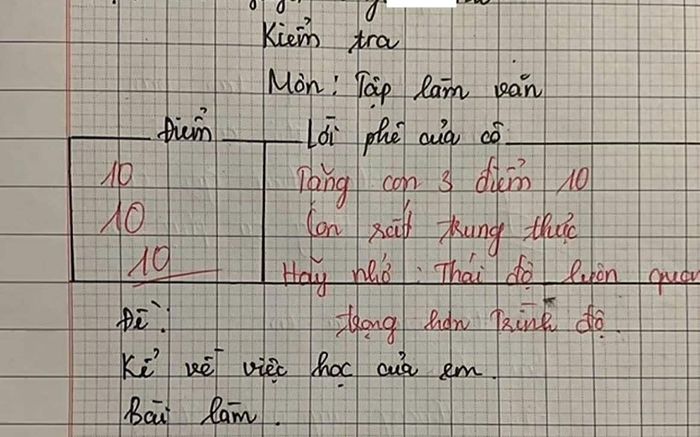 Kiểm tra
Môn: Tập làm văn
Điểm
Lời phê của cô
10
10
10
Tặng con 3 điểm 10
Con rất trung thực
Hãy nhớ: Thái độ luôn quan
trọng hơn Trình độ.
Đề:
Kể về việc học của em.
Bài làm.